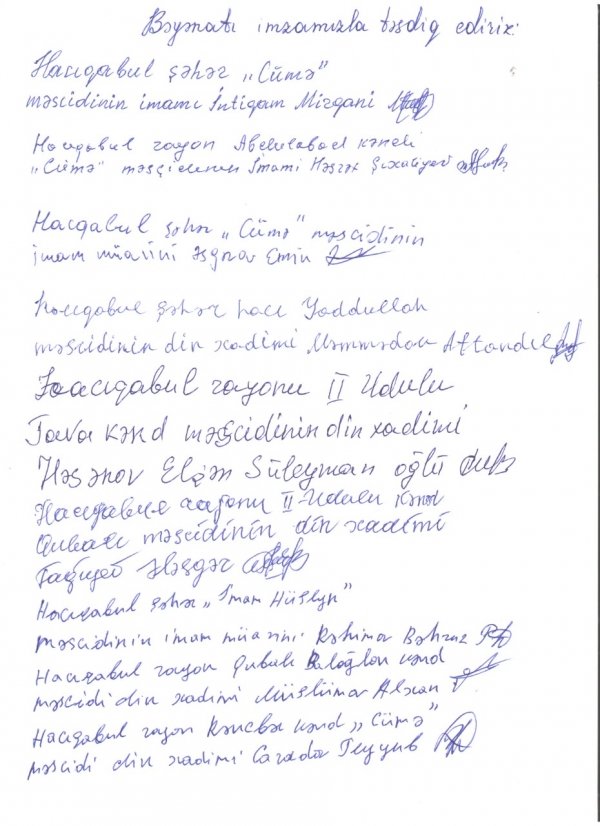 Bəyanatı imzamızla təsdiq edirix:
Hacıqabul şəhər „Cümə"
məscidinin imamı İntiqam Mirqani
Hacıqabul rayon Abdulabad kəndi
„Cümə" məsçidinin İmami Həşrət Şıxəliyev
Hacıqabul şəhər „Cümə" məscidinin
imam müavini Əsgərov Emin
Hacıqabul şəhər hacı Yaddullah
məscidinin din xadimi Məmmədov Aftandil
Hacıqabul rayonu II Udulu
Tava kənd məscidinin din xadimi
Həsənov Elçən Süleyman oğlu
Hacıqabul rayonu II-Udulu kənd
Qubalı məscidinin din xadimi
Ələsgər
Hacıqabul şəhər „İmam Hüseyn"
məscidinin imam müavini: Rəhimov Bəhruz
Hacıqabul rayon Qubalı Baloğlan kənd
məscidi din xadimi Müslümov
Hacıqabul rayon Rəncbər kənd „Cümə"
məscidi din xadimi Teyyub